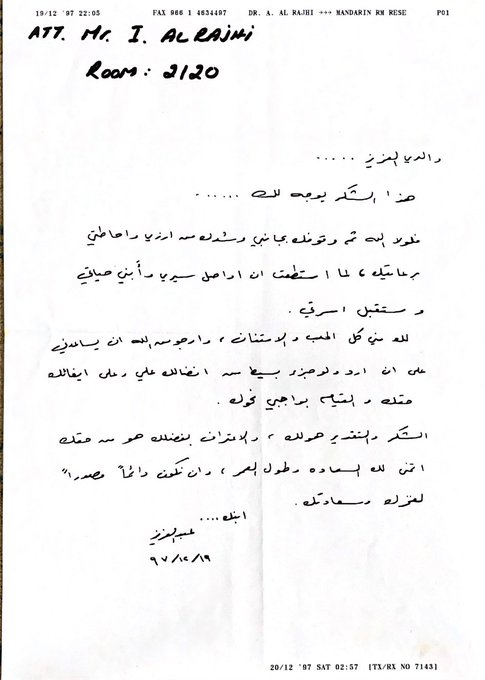 19/12 '97 22:05 FAX 966 1 4634497 DR. A. AL RAJHI +++ MANDARIN RM RESE P01
ATT. Mr. I. ALRAJHI
ROOM: 2120
والدي العزيز .....
هذا الشكر يوجه لك ......
فلولا الله ثم وقوفك بجانبي وشدك من ازري واحاطتي
برعايتك ، لما استطعت ان اواصل سيري وأبني حياتي
ومستقبل اسرتي .
لك مني كل الحب والامتنان ، وارجو من الله ان يساعدني
على ان ارد ولو جزء بسيط من افضالك علي وعلى ايفائك
حقك والقيام بواجبي نحوك .
الشكر والتقدير هو لك ، والاعتراف بفضلك هو من حقك
اتمنى لك السعاده وطول العمر ، وان نكون دائماً مصدراً
لفخرك وسعادتك .
ابنك ....
عبدالعزيز
٩٧/١٢/١٩
20/12 '97 SAT 02:57 [TX/RX NO 7143]